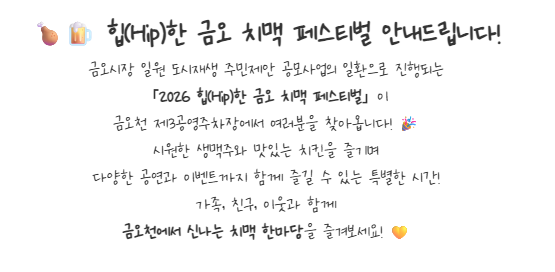 🍗 🍺 힙(Hip)한 금오 치맥 페스티벌 안내드립니다!
금오시장 일원 도시재생 주민제안 공모사업의 일환으로 진행되는
「2026 힙(Hip)한 금오 치맥 페스티벌」이
금오천 제3공영주차장에서 여러분을 찾아옵니다! 🎉
시원한 생맥주와 맛있는 치킨을 즐기며
다양한 공연과 이벤트까지 함께 즐길 수 있는 특별한 시간!
가족, 친구, 이웃과 함께
금오천에서 신나는 치맥 한마당을 즐겨보세요! 🧡